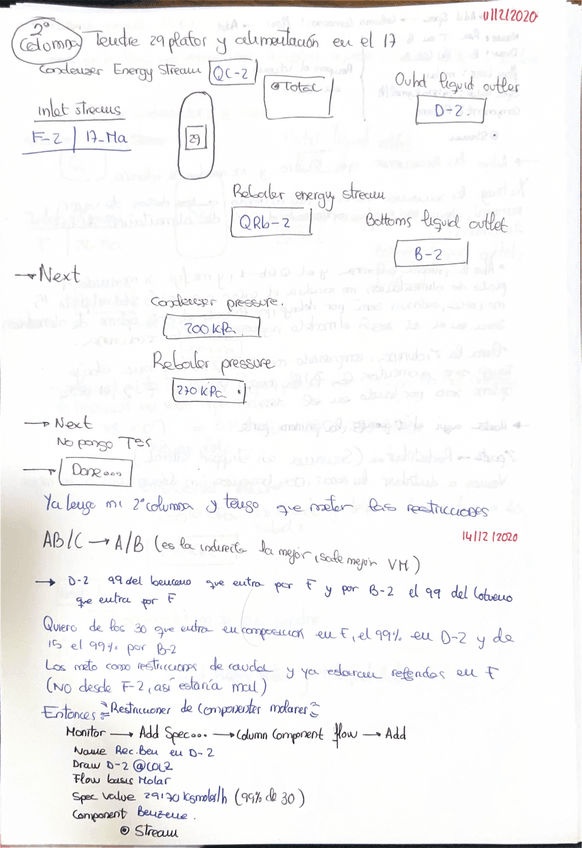 11/12/2020
2ª Columna Tendre 29 platos y alimentación en el 17
Condenzer Energy Stream QC-2
Total
Ovhd liquid outler
D-2
inlet streams
F-2 | 17_Ma
29
Reboiler energy stream
QRb-2
Bottoms liquid outlet
B-2
→ Next
Condenser pressure.
200 KPa
Reboiler pressure
270 KPa
→ Next
No pongo Tas
→ Done...
Ya tengo mi 2ª columna y tengo que meter las restricciones
14/12/2020
AB/C → A/B (es la indirecta la mejor, sale mejor VM)
→ D-2 99 del benceno que entra por F y por B-2 el 99 del tolueno
que entra por F
Quiero de los 30 que entra en composicion en F, el 99% en D-2 y de
15 el 99% por B-2
Los meto como restricciones de caudal y ya estarian referidos en F
(NO desde F-2, así estaría mal)
Entonces Restricciones de componentes molares
Monitor → Add Spec... → Column Component flow → Add
Name Rec.Ben en D-2
Draw D-2 @COL2
Flow basis Molar
Spec value 29170 kgmoles/h (99% de 30)
Component Benzene.
Stream